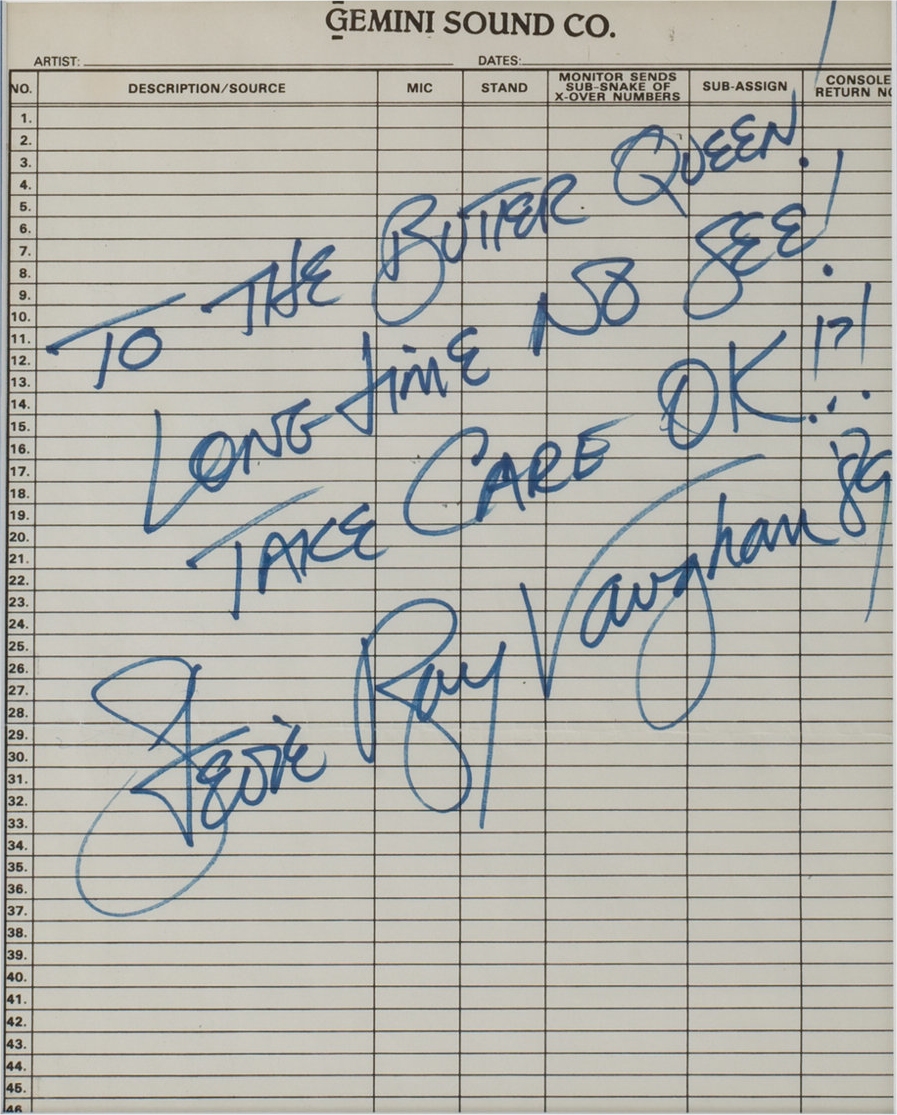 GEMINI SOUND CO.
ARTIST: DATES:
NO. DESCRIPTION/SOURCE MIC STAND MONITOR SENDS SUB-SNAKE OF X-OVER NUMBERS SUB-ASSIGN CONSOLE RETURN NO
1.
2.
3.
4.
5.
6.
7.
8.
9.
10.
11.
12.
13.
14.
15.
16.
17.
18.
19.
20.
21.
22.
23.
24.
25.
26.
27.
28.
29.
30.
31.
32.
33.
34.
35.
36.
37.
38.
39.
40.
41.
42.
43.
44.
45.
46
TO THE BUTTER QUEEN!
LONG TIME NO SEE!
TAKE CARE OK!?!
Stevie Ray Vaughan '89